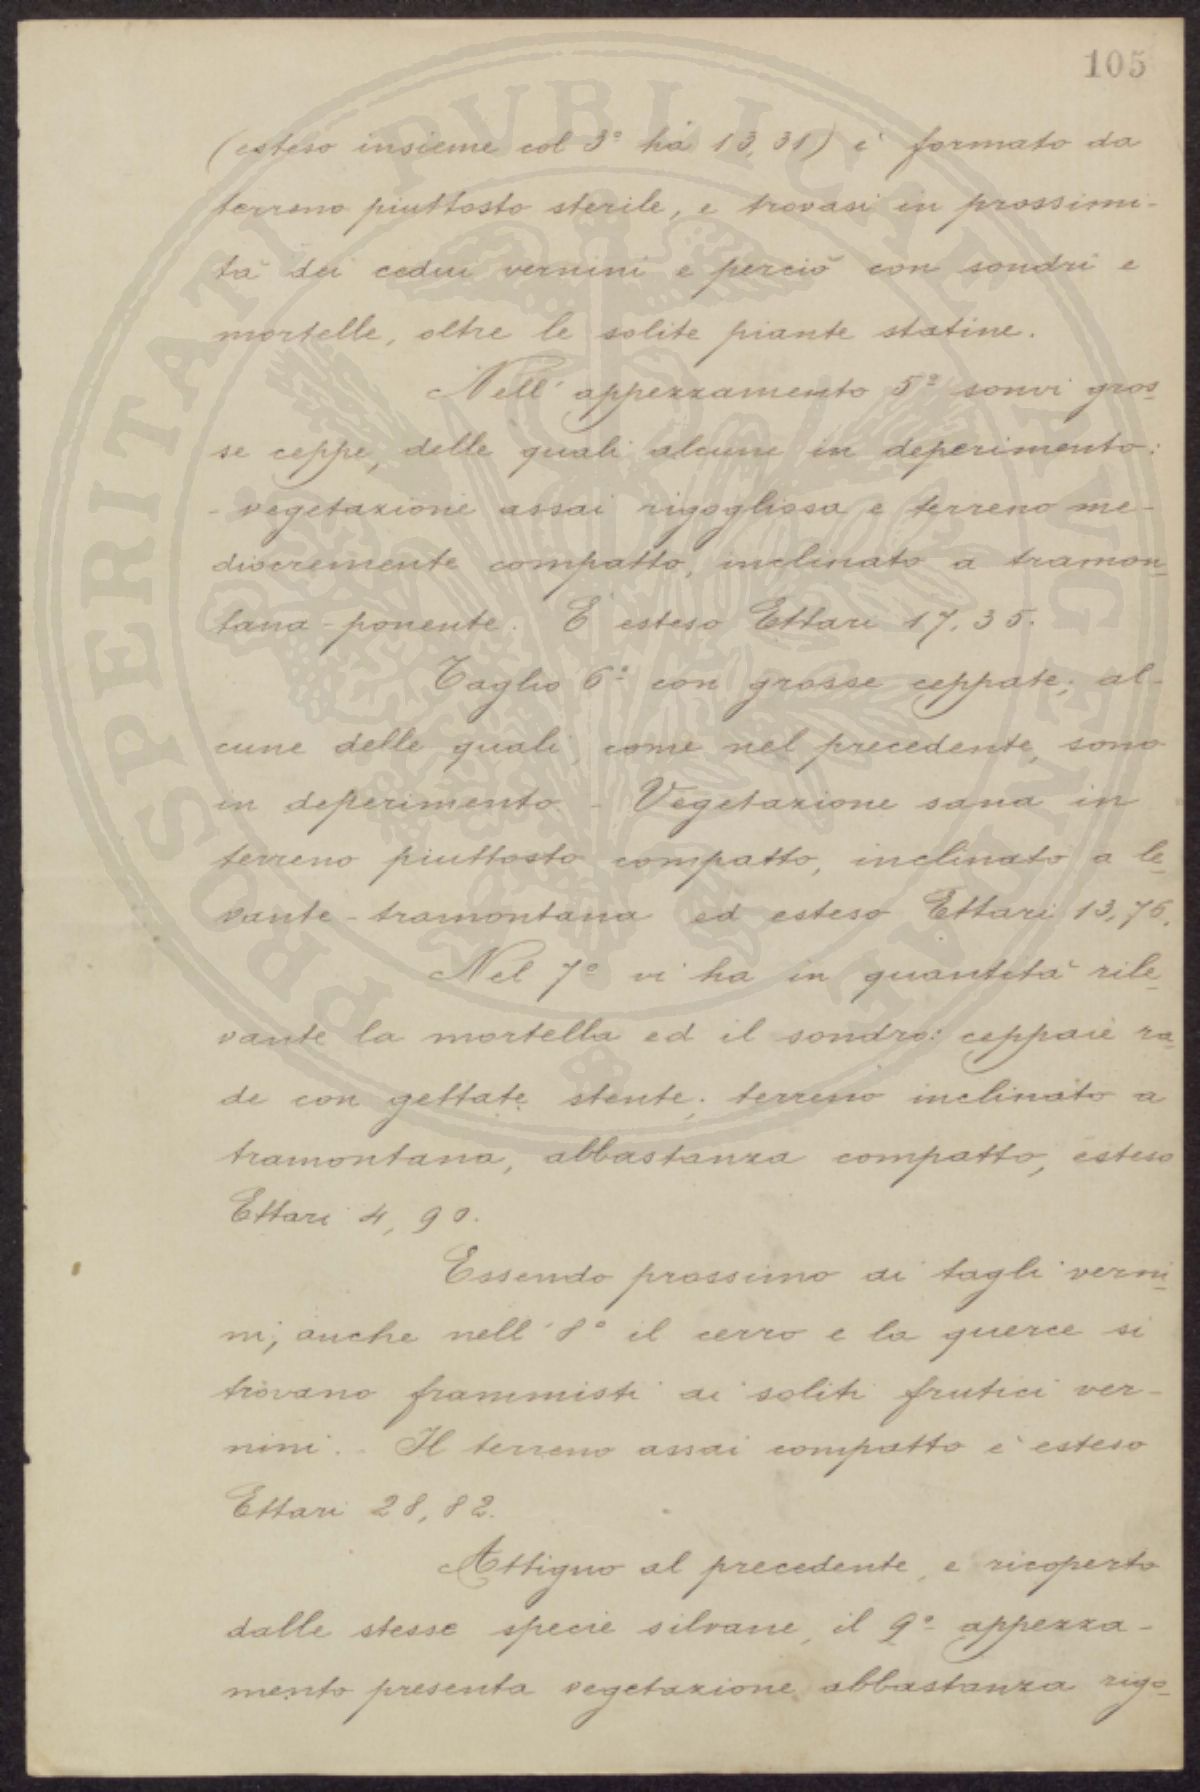 105
(esteso insieme col 3º ha 13,31) è formato da
terreno piuttosto sterile, e trovasi in prossimi-
tà dei cedui vernini e perciò con sondri e
mortelle, oltre le solite piante statine.
Nell'appezzamento 5º sonvi gros-
se ceppe, delle quali alcune in deperimento:
- vegetazione assai rigogliosa e terreno me-
diocremente compatto, inclinato a tramon-
tana-ponente. È esteso Ettari 17.35.
Taglio 6º con grosse ceppate; al-
cune delle quali, come nel precedente, sono
in deperimento - Vegetazione sana in
terreno piuttosto compatto, inclinato a le-
vante-tramontana ed esteso Ettari 13,76.
Nel 7º vi ha in quantità rile-
vante la mortella ed il sondro: ceppaie ra-
de con gettate stente; terreno inclinato a
tramontana, abbastanza compatto, esteso
Ettari 4,90.
Essendo prossimo ai tagli verni-
ni, anche nell'8º il cerro e la querce si
trovano frammisti ai soliti frutici ver-
nini. - Il terreno assai compatto è esteso
Ettari 28,82.
Attiguo al precedente, e ricoperto
dalle stesse specie silvane, il 9º appezza-
mento presenta vegetazione abbastanza rigo-
PROSPERITATI PVBLICAE AVGENDAE